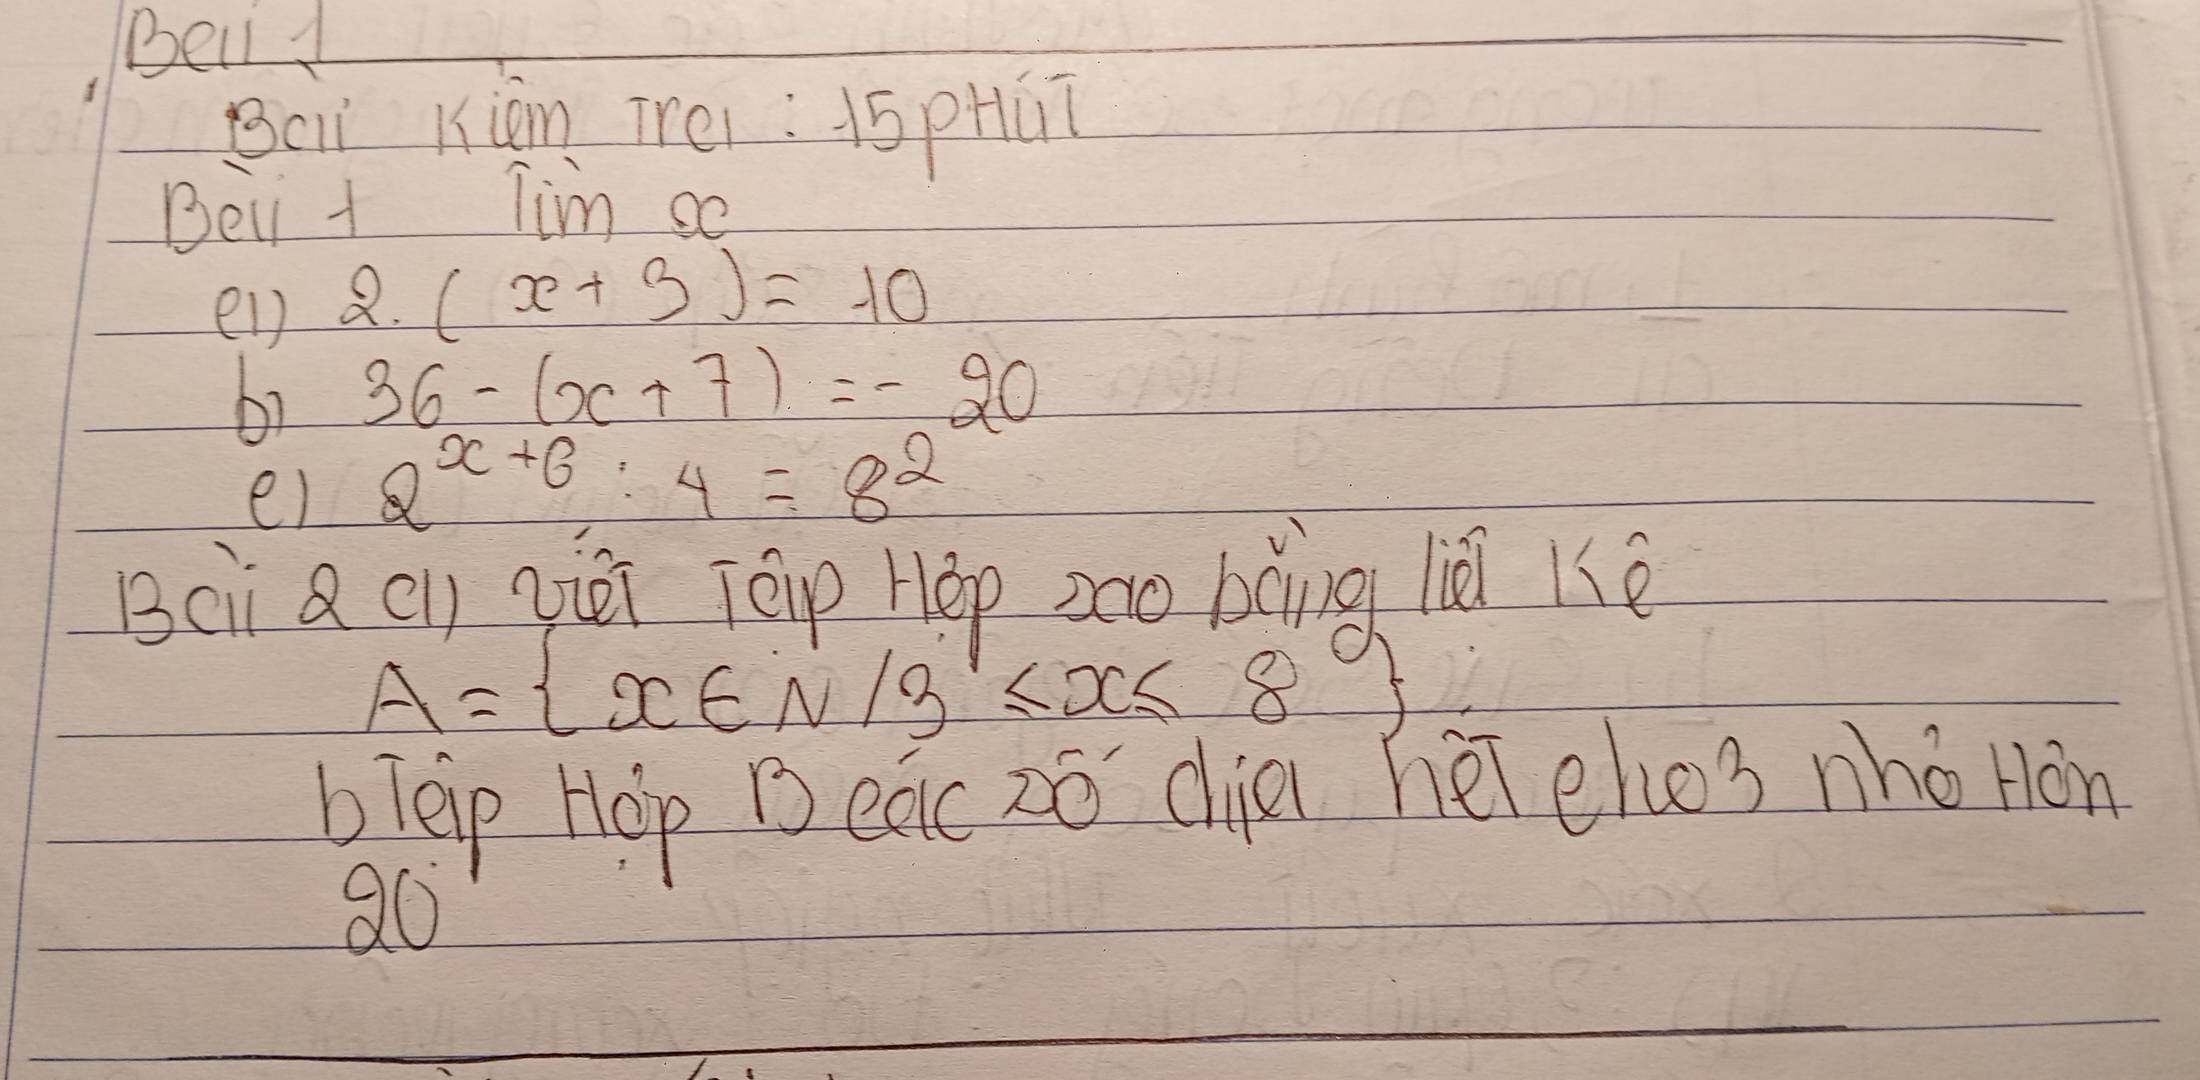 Bài 1
Bài Kiểm Tra : 15 pHút
Bài 1 Tìm x
a) 2. ( x + 3 ) = 10
b) 36 - (x + 7) = - 20
c) 2^{x+6} : 4 = 8^2
Bài 2 a) viết Tập Hợp sao bằng liệt Kê
A = { x ∈ N / 3 ≤ x ≤ 8 }
b Tập Hợp B các số chia hết cho 3 nhỏ Hơn
20